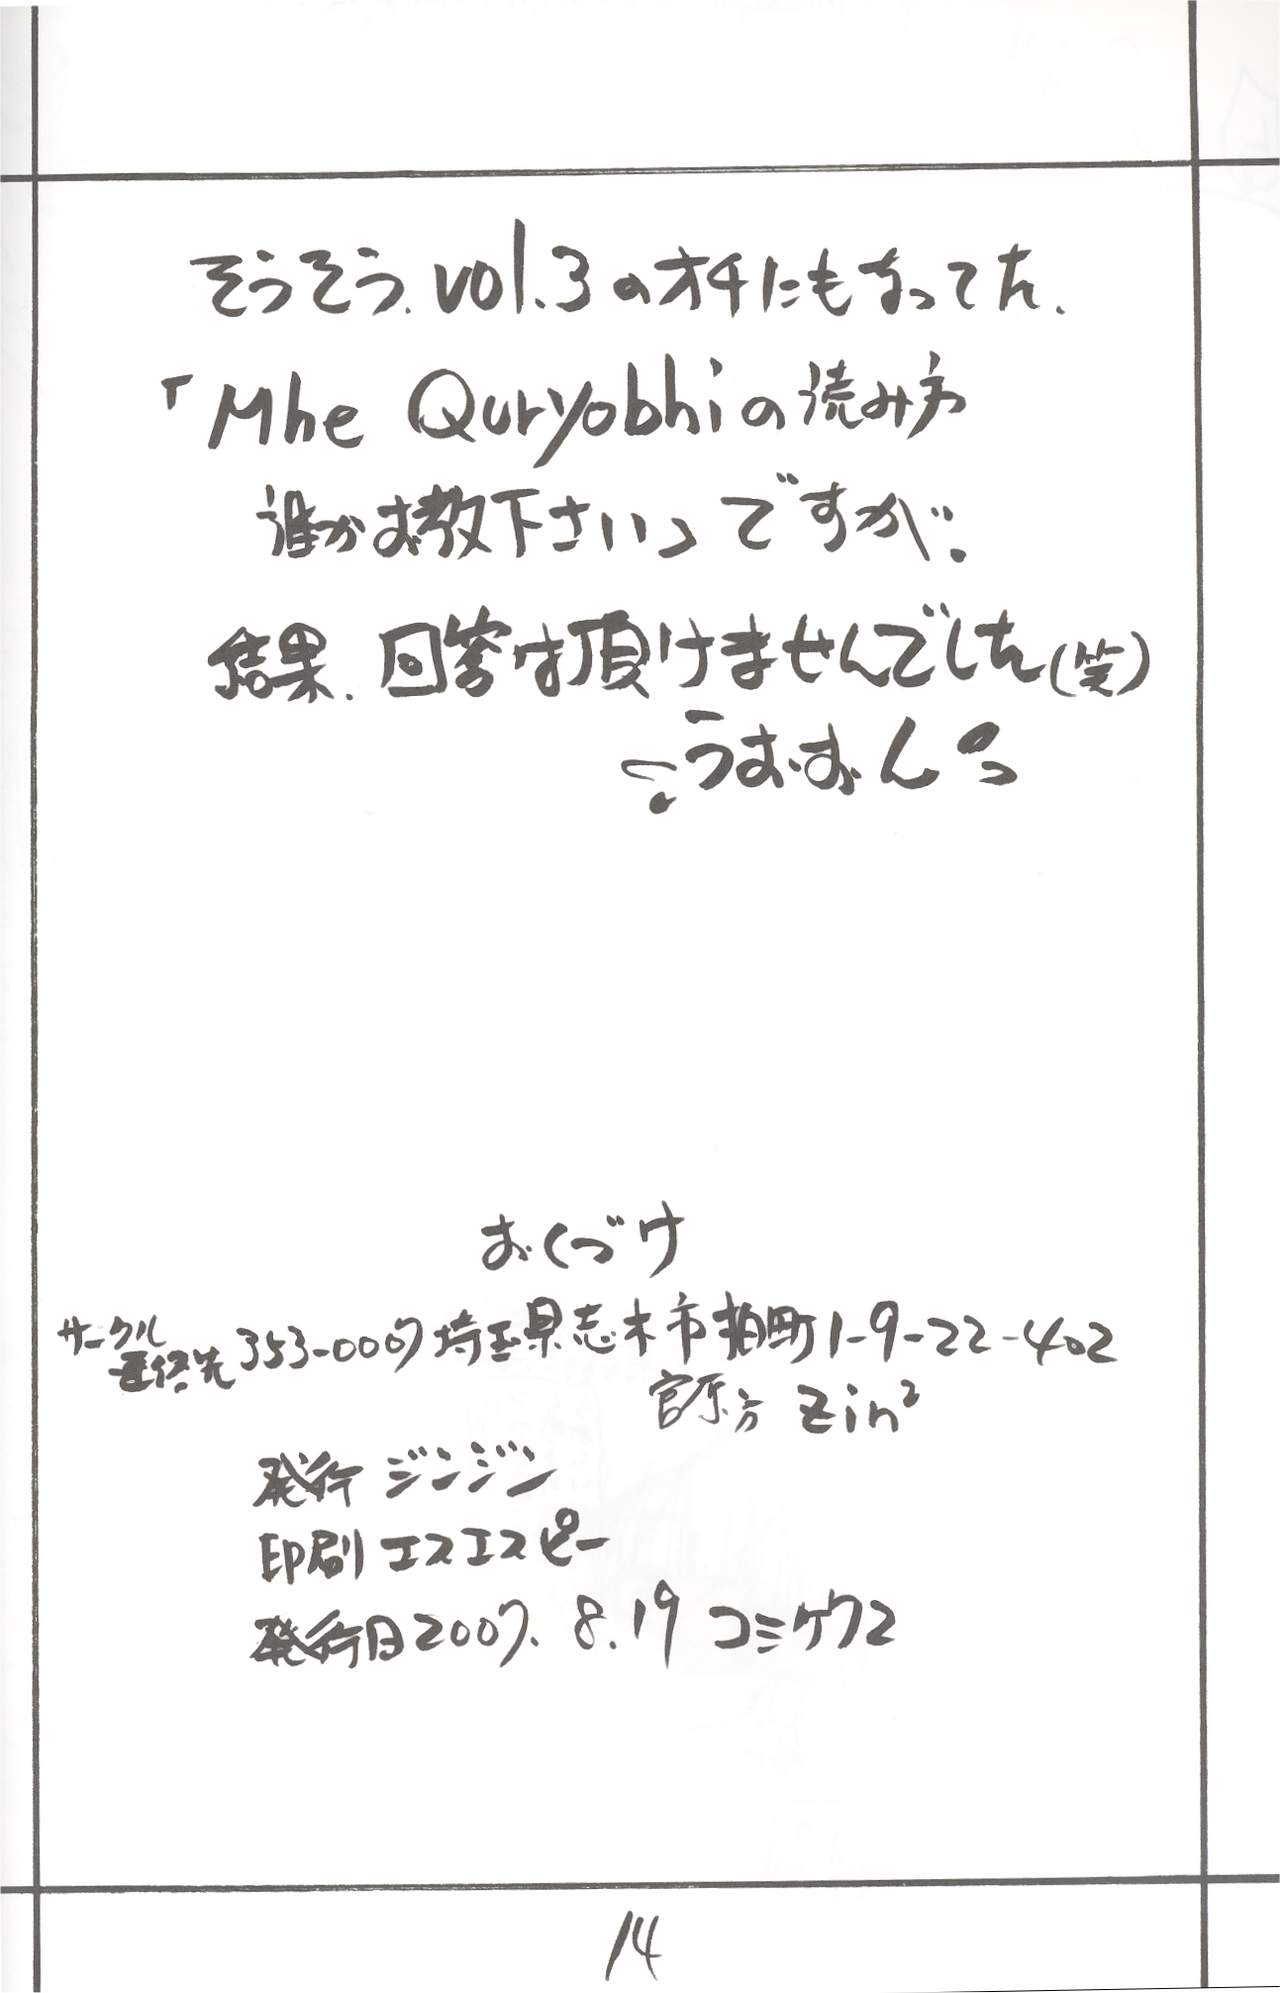 そうそう、vol.3のオチにもなってた、
「Mhe Quryobhiの読み方
誰かお教下さい」ですが、
結果、回答は頂けませんでした(笑)
うおおんっ
おくづけ
サークル
連絡先 353-0007 埼玉県志木市柏町1-9-22-402
宮原方 Zin²
発行 ジンジン
印刷 エスエスピー
発行日 2007. 8.19 コミケ72
14